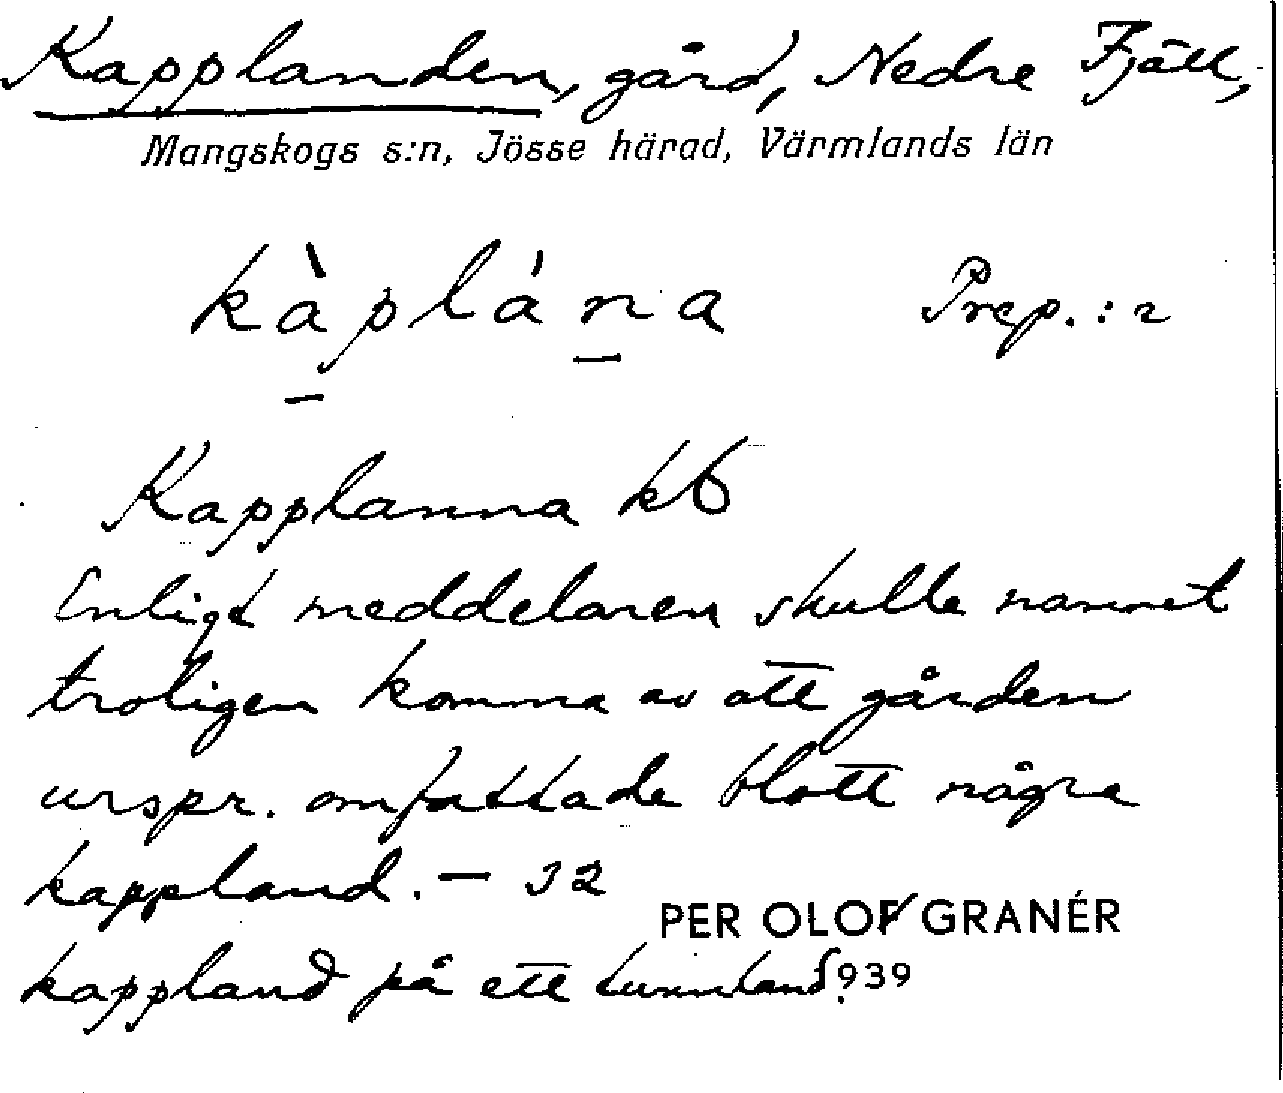 Kapplanden, gård, Nedre Fjäll,
Mangskogs s:n, Jösse härad, Värmlands län
kàplána Prep.: 2
Kapplanna kb
Enligt meddelaren skulle namnet
troligen komma av att gården
urspr. omfattade blott några
kappland. – 32
PER OLOF GRANÉR
kappland på ett tunnland.
1939